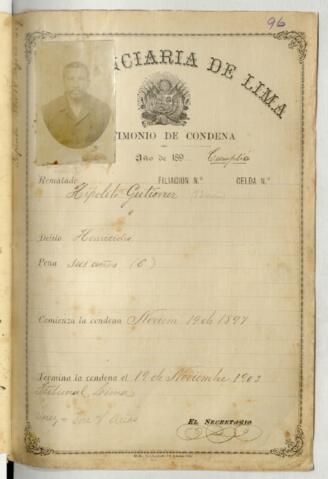 96
NCIARIA DE LIMA
TIMONIO DE CONDENA
Año de 189 Cumplió
Rematado Hipolito Gutiérrez FILIACION N.º CELDA N.º
Delito Homicidio
Pena seis años (6)
Comienza la condena Noviem 19 de 1897
Termina la condena el 19 de Noviembre 1903
Tribunal Lima
Juez
EL SECRETARIO